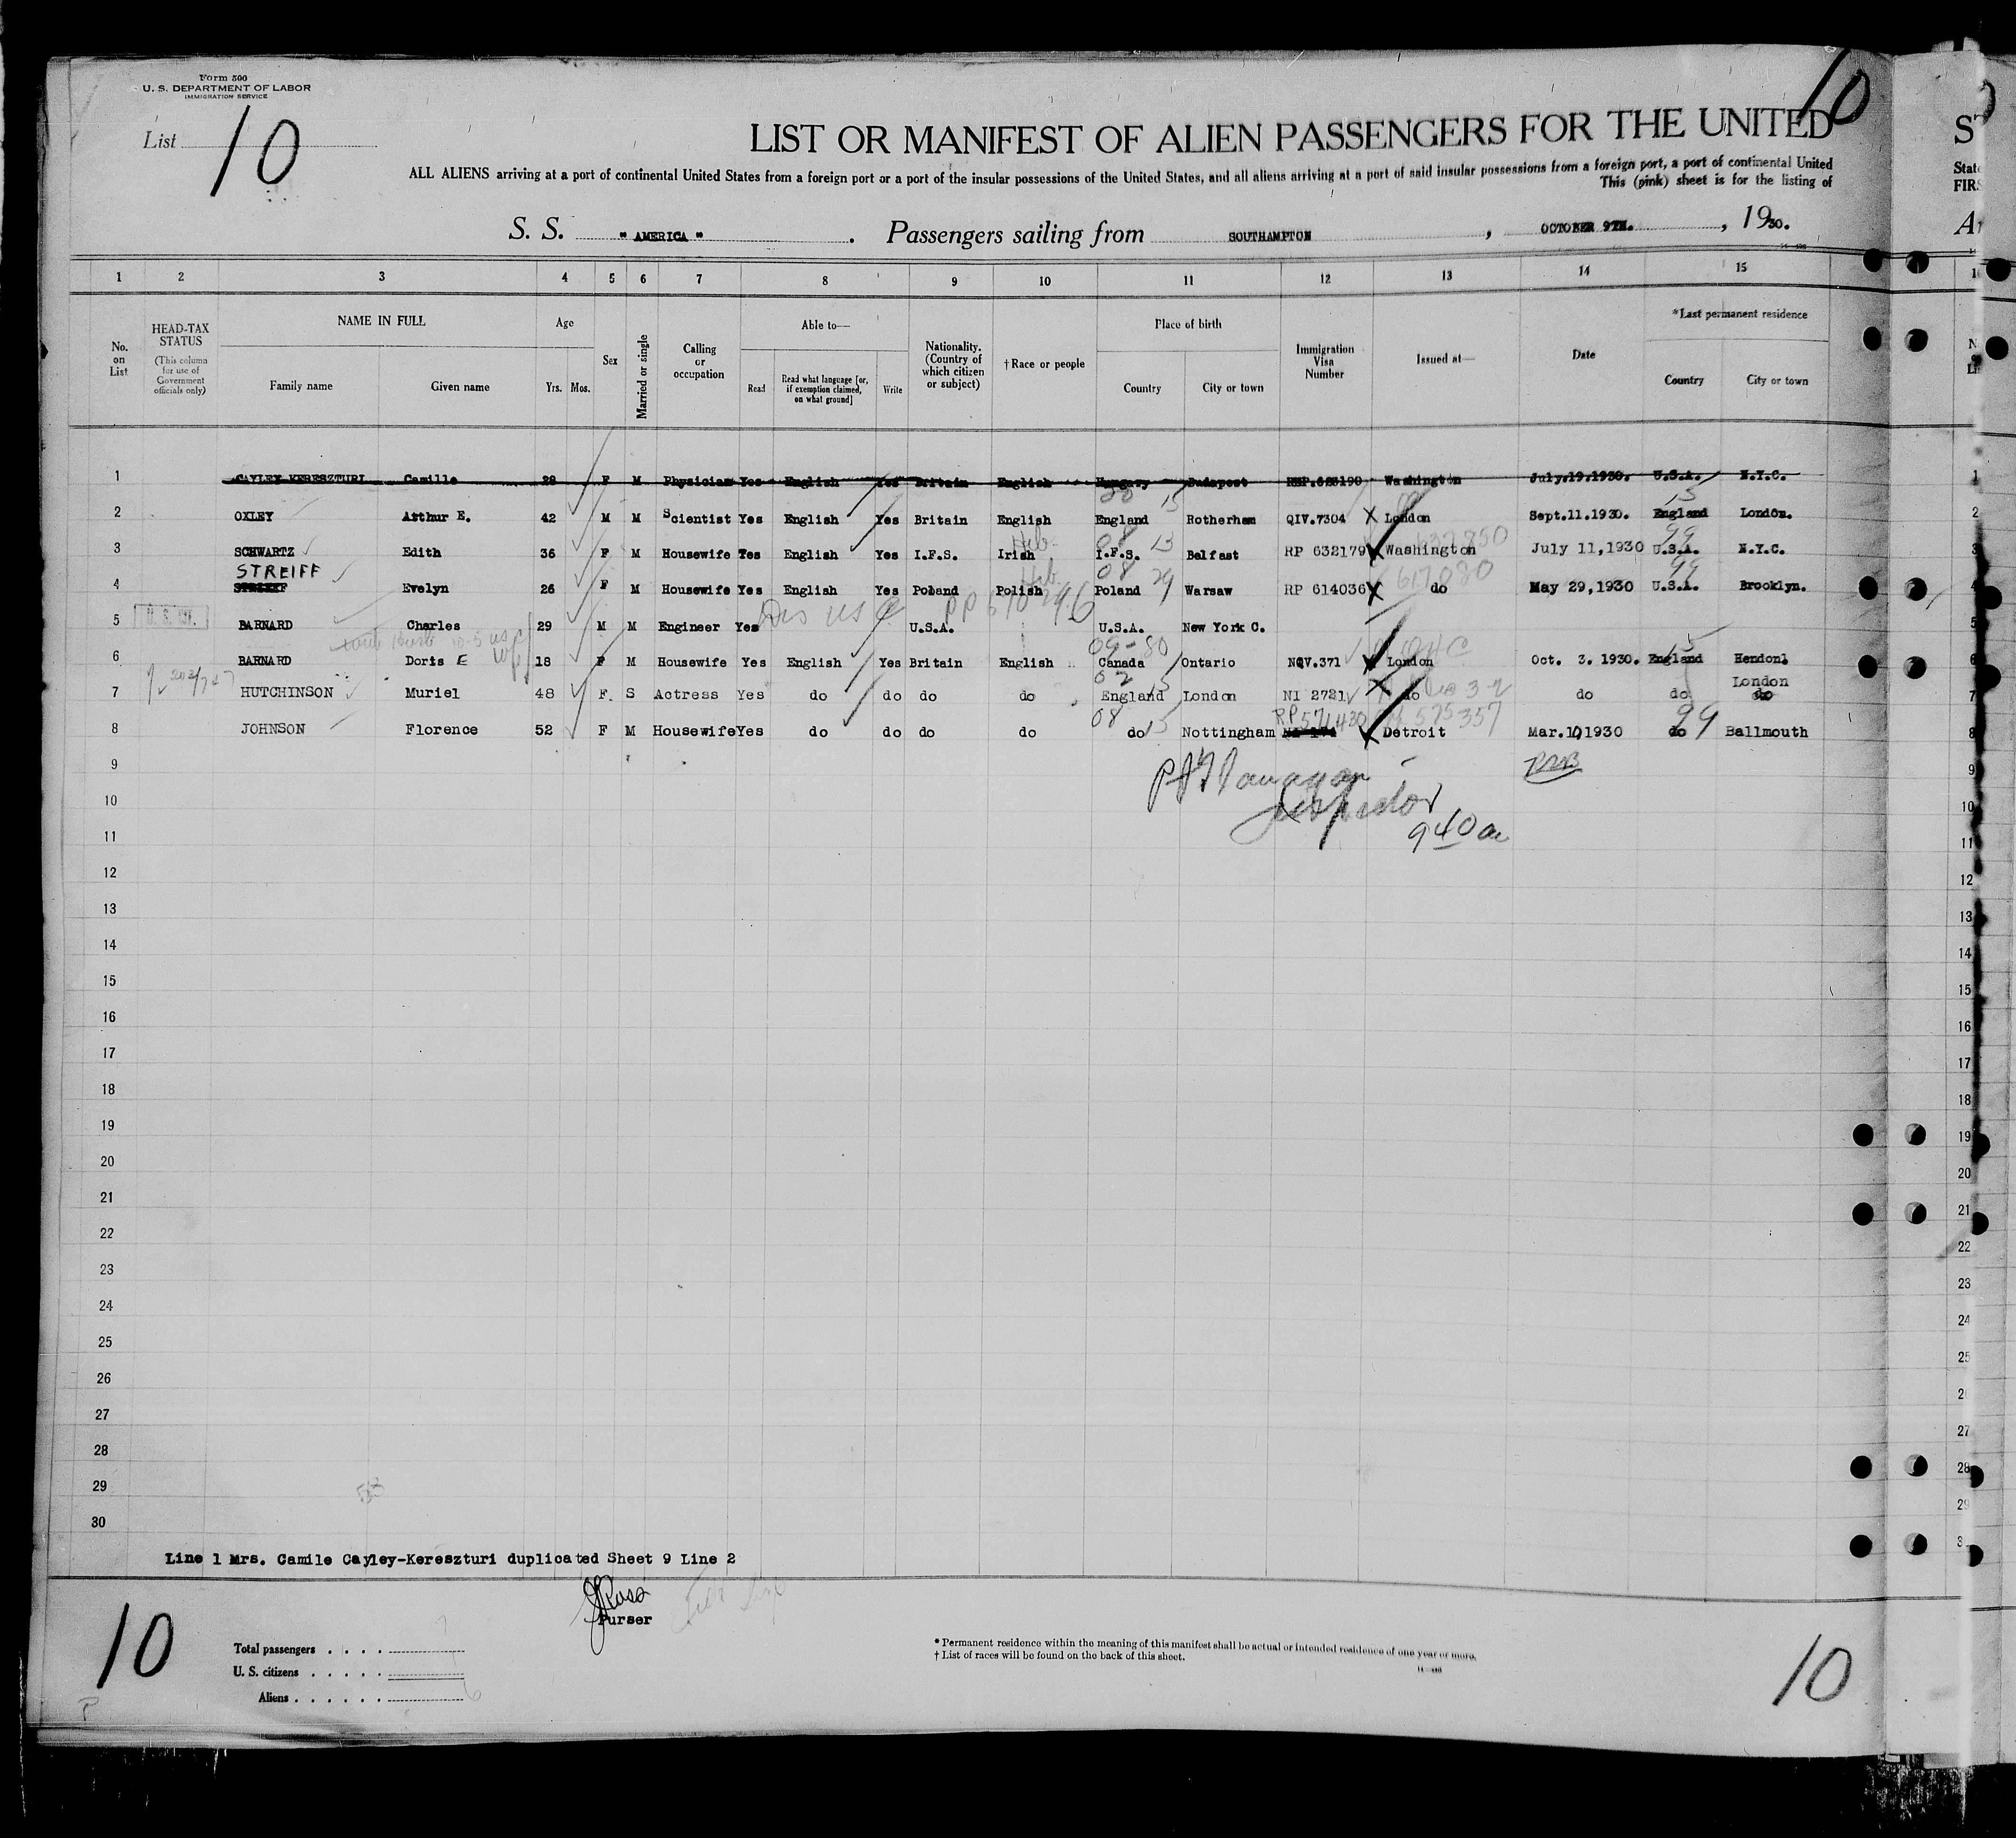 Form 500
U. S. DEPARTMENT OF LABOR
IMMIGRATION SERVICE
List 10
10
LIST OR MANIFEST OF ALIEN PASSENGERS FOR THE UNITED
ALL ALIENS arriving at a port of continental United States from a foreign port or a port of the insular possessions of the United States, and all aliens arriving at a port of said insular possessions from a foreign port, a port of continental United
This (pink) sheet is for the listing of
S. S. "AMERICA". Passengers sailing from SOUTHAMPTON, OCTOBER 9TH., 1930.
1 2 3 4 5 6 7 8 9 10 11 12 13 14 15
No. on List
HEAD-TAX STATUS (This column for use of Government officials only)
NAME IN FULL
Family name Given name
Age
Yrs. Mos.
Sex
Married or single
Calling or occupation
Able to—
Read
Read what language [or, if exemption claimed, on what ground]
Write
Nationality. (Country of which citizen or subject)
†Race or people
Place of birth
Country City or town
Immigration Visa Number
Issued at—
Date
*Last permanent residence
Country City or town
1 CAYLEY KERESZTURI Camille 28 F M Physician Yes English Yes Britain English Hungary Budapest Washington July.19.1930. U.S.A. N.Y.C.
2 OXLEY Arthur E. 42 M M Scientist Yes English Yes Britain English England Rotherham QIV.7304 London Sept.11.1930. England London.
3 SCHWARTZ Edith 36 F M Housewife Yes English Yes I.F.S. Irish I.F.S. Belfast RP 632179 Washington July 11,1930 U.S.A. N.Y.C.
STREIFF
4 Evelyn 26 F M Housewife Yes English Yes Poland Polish Poland Warsaw RP 614036 do May 29,1930 U.S.A. Brooklyn.
5 BARNARD Charles 29 M M Engineer Yes U.S.A. U.S.A. New York C.
6 BARNARD Doris E 18 F M Housewife Yes English Yes Britain English Canada Ontario NQV.371 London Oct. 3. 1930. England Hendon.
London
7 HUTCHINSON Muriel 48 F. S Actress Yes do do do do England London NI 2721 do do do do
8 JOHNSON Florence 52 F M Housewife Yes do do do do do Nottingham RP571430 Detroit Mar.10,1930 do Ballmouth
9
Inspector
10
940 am
11
12
13
14
15
16
17
18
19
20
21
22
23
24
25
26
27
28
29
30
Line 1 Mrs. Camile Cayley-Kereszturi duplicated Sheet 9 Line 2
Purser
10
Total passengers
U. S. citizens
Aliens 6
* Permanent residence within the meaning of this manifest shall be actual or intended residence of one year or more.
† List of races will be found on the back of this sheet.
10